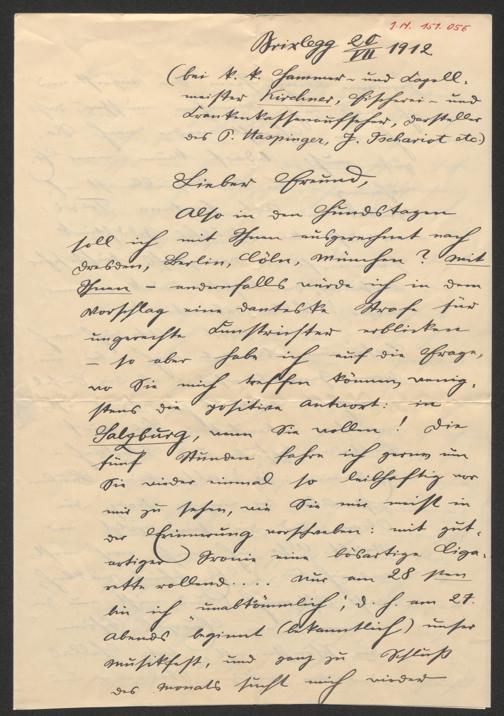 J.N. 151.056
Brixlegg 20/VII 1912
(bei k. k. Hammer- und Kapell-
meister Kirchner, Fischerei- und
Krankenkassenaufseher, Darsteller
des P. Haspinger, J. Ischariot etc)
Lieber Freund,
Also in den Hundstagen
soll ich mit Ihnen ausgerechnet nach
Dresden, Berlin, Cöln, München? Mit
Ihnen – andernfalls würde ich in dem
Vorschlag eine danteske Strafe für
ungerechte Kunstrichter erblicken
– so aber habe ich auf die Frage,
wo Sie mich treffen können, wenig-
stens die positive Antwort: in
Salzburg, wenn Sie wollen! Die
fünf Stunden fahre ich gerne um
Sie wieder einmal so leibhaftig vor
mir zu sehen, wie Sie mir meist in
der Erinnerung vorschweben: mit gut-
artiger Ironie eine bösartige Ziga-
rette rollend.... Nur am 28sten
bin ich "unabkömmlich", d. h. am 27.
Abends beginnt (bekanntlich) unser
Musikfest, und ganz zu Schluß
des Monats sucht mich wieder